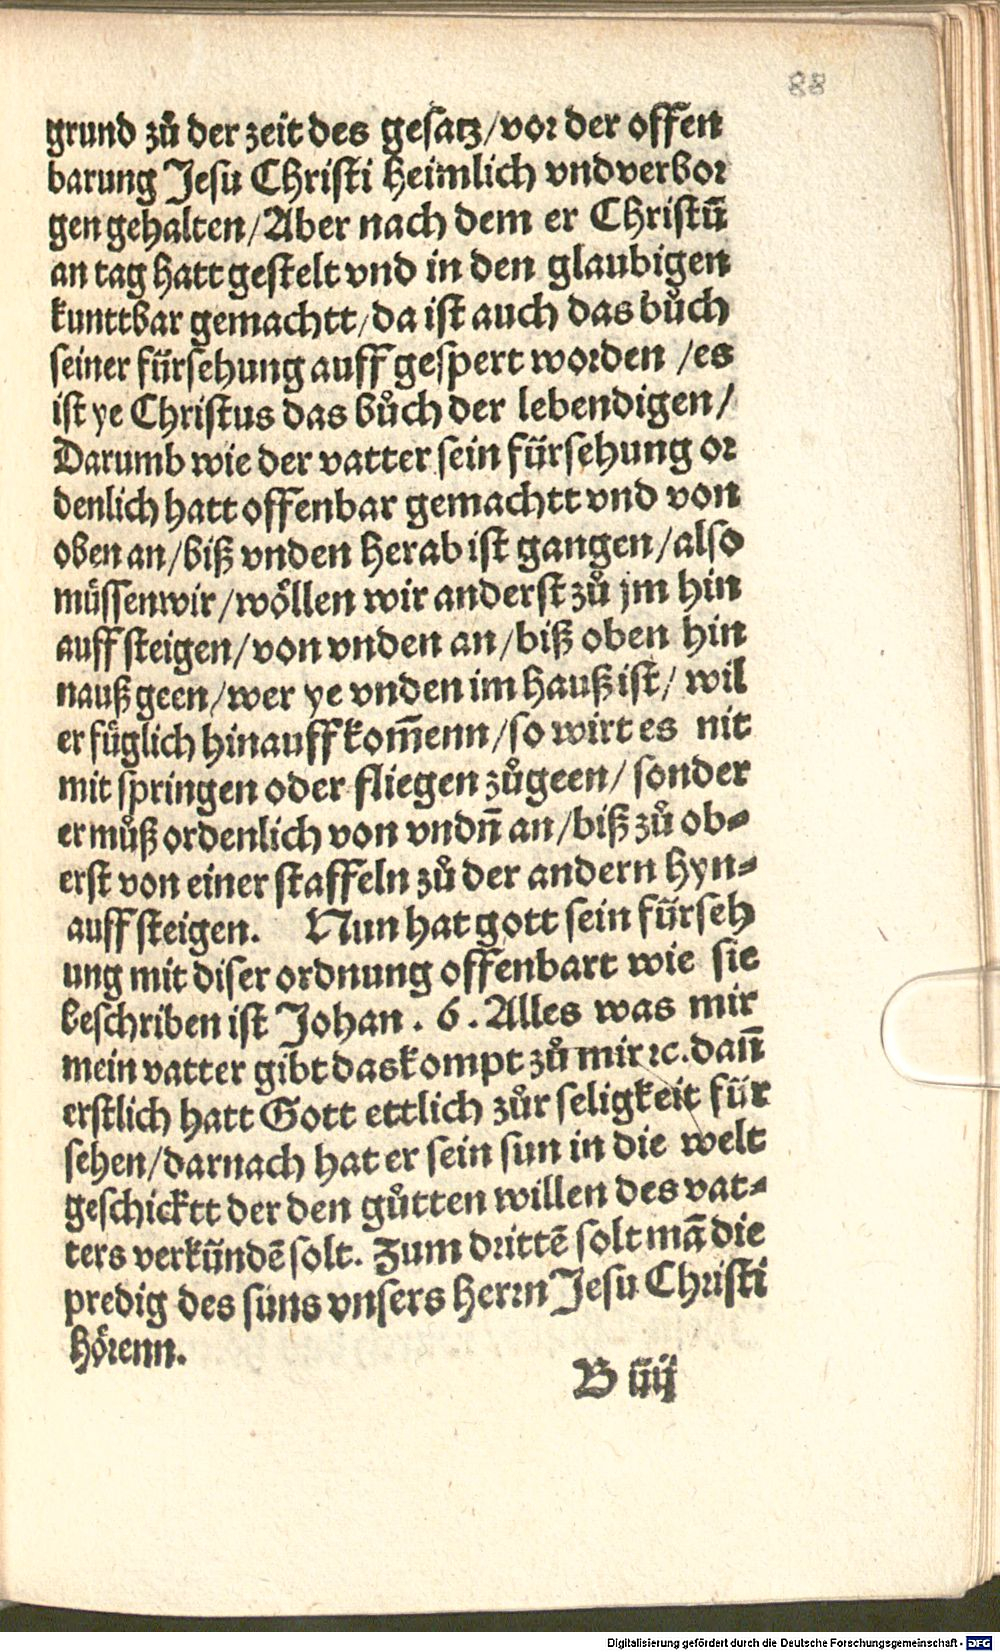 88
grund zů der zeit des gesatz/vor der offen
barung Jesu Christi heimlich vnd verbor
gen gehalten/Aber nach dem er Christū
an tag hatt gestelt vnd in den glaubigen
kunttbar gemachtt/da ist auch das bůch
seiner fürsehung auff gespert worden /es
ist ye Christus das bůch der lebendigen/
Darumb wie der vatter sein fürsehung or
denlich hatt offenbar gemachtt vnd von
oben an/biß vnden herab ist gangen/also
müssen wir/wöllen wir anderst zů jm hin
auff steigen/von vnden an/biß oben hin
nauß geen/wer ye vnden im hauß ist/ wil
er füglich hinauff kom̄enn/so wirt es nit
mit springen oder fliegen zůgeen/ sonder
er můß ordenlich von vndn̄ an/biß zů ob⸗
erst von einer staffeln zů der andern hyn⸗
auff steigen. Nun hat gott sein fürseh
ung mit diser ordnung offenbart wie sie
beschriben ist Johan . 6 . Alles was mir
mein vatter gibt das kompt zů mir ꝛc. dan̄
erstlich hatt Gott ettlich zůr seligkeit für
sehen/darnach hat er sein sun in die welt
geschicktt der den gůtten willen des vat⸗
ters verkündē solt. Zum drittē solt mā die
predig des suns vnsers herrn Jesu Christi
hörenn.
B iiij
Digitalisierung gefördert durch die Deutsche Forschungsgemeinschaft - DFG